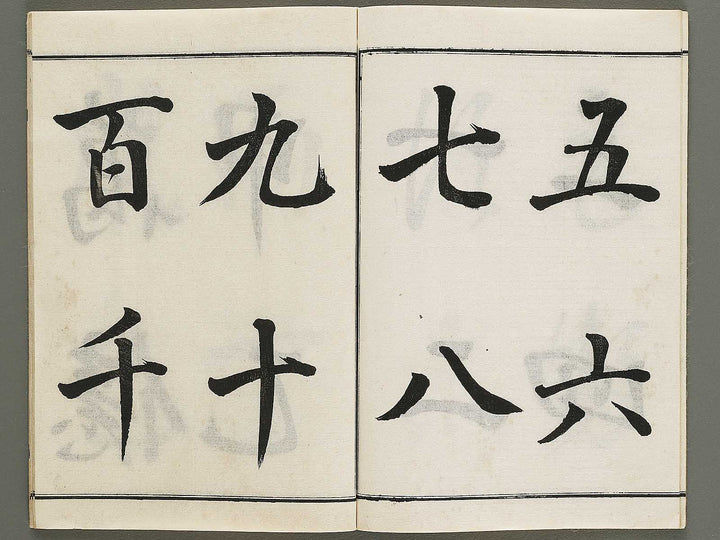 五六
七八
九十
百千